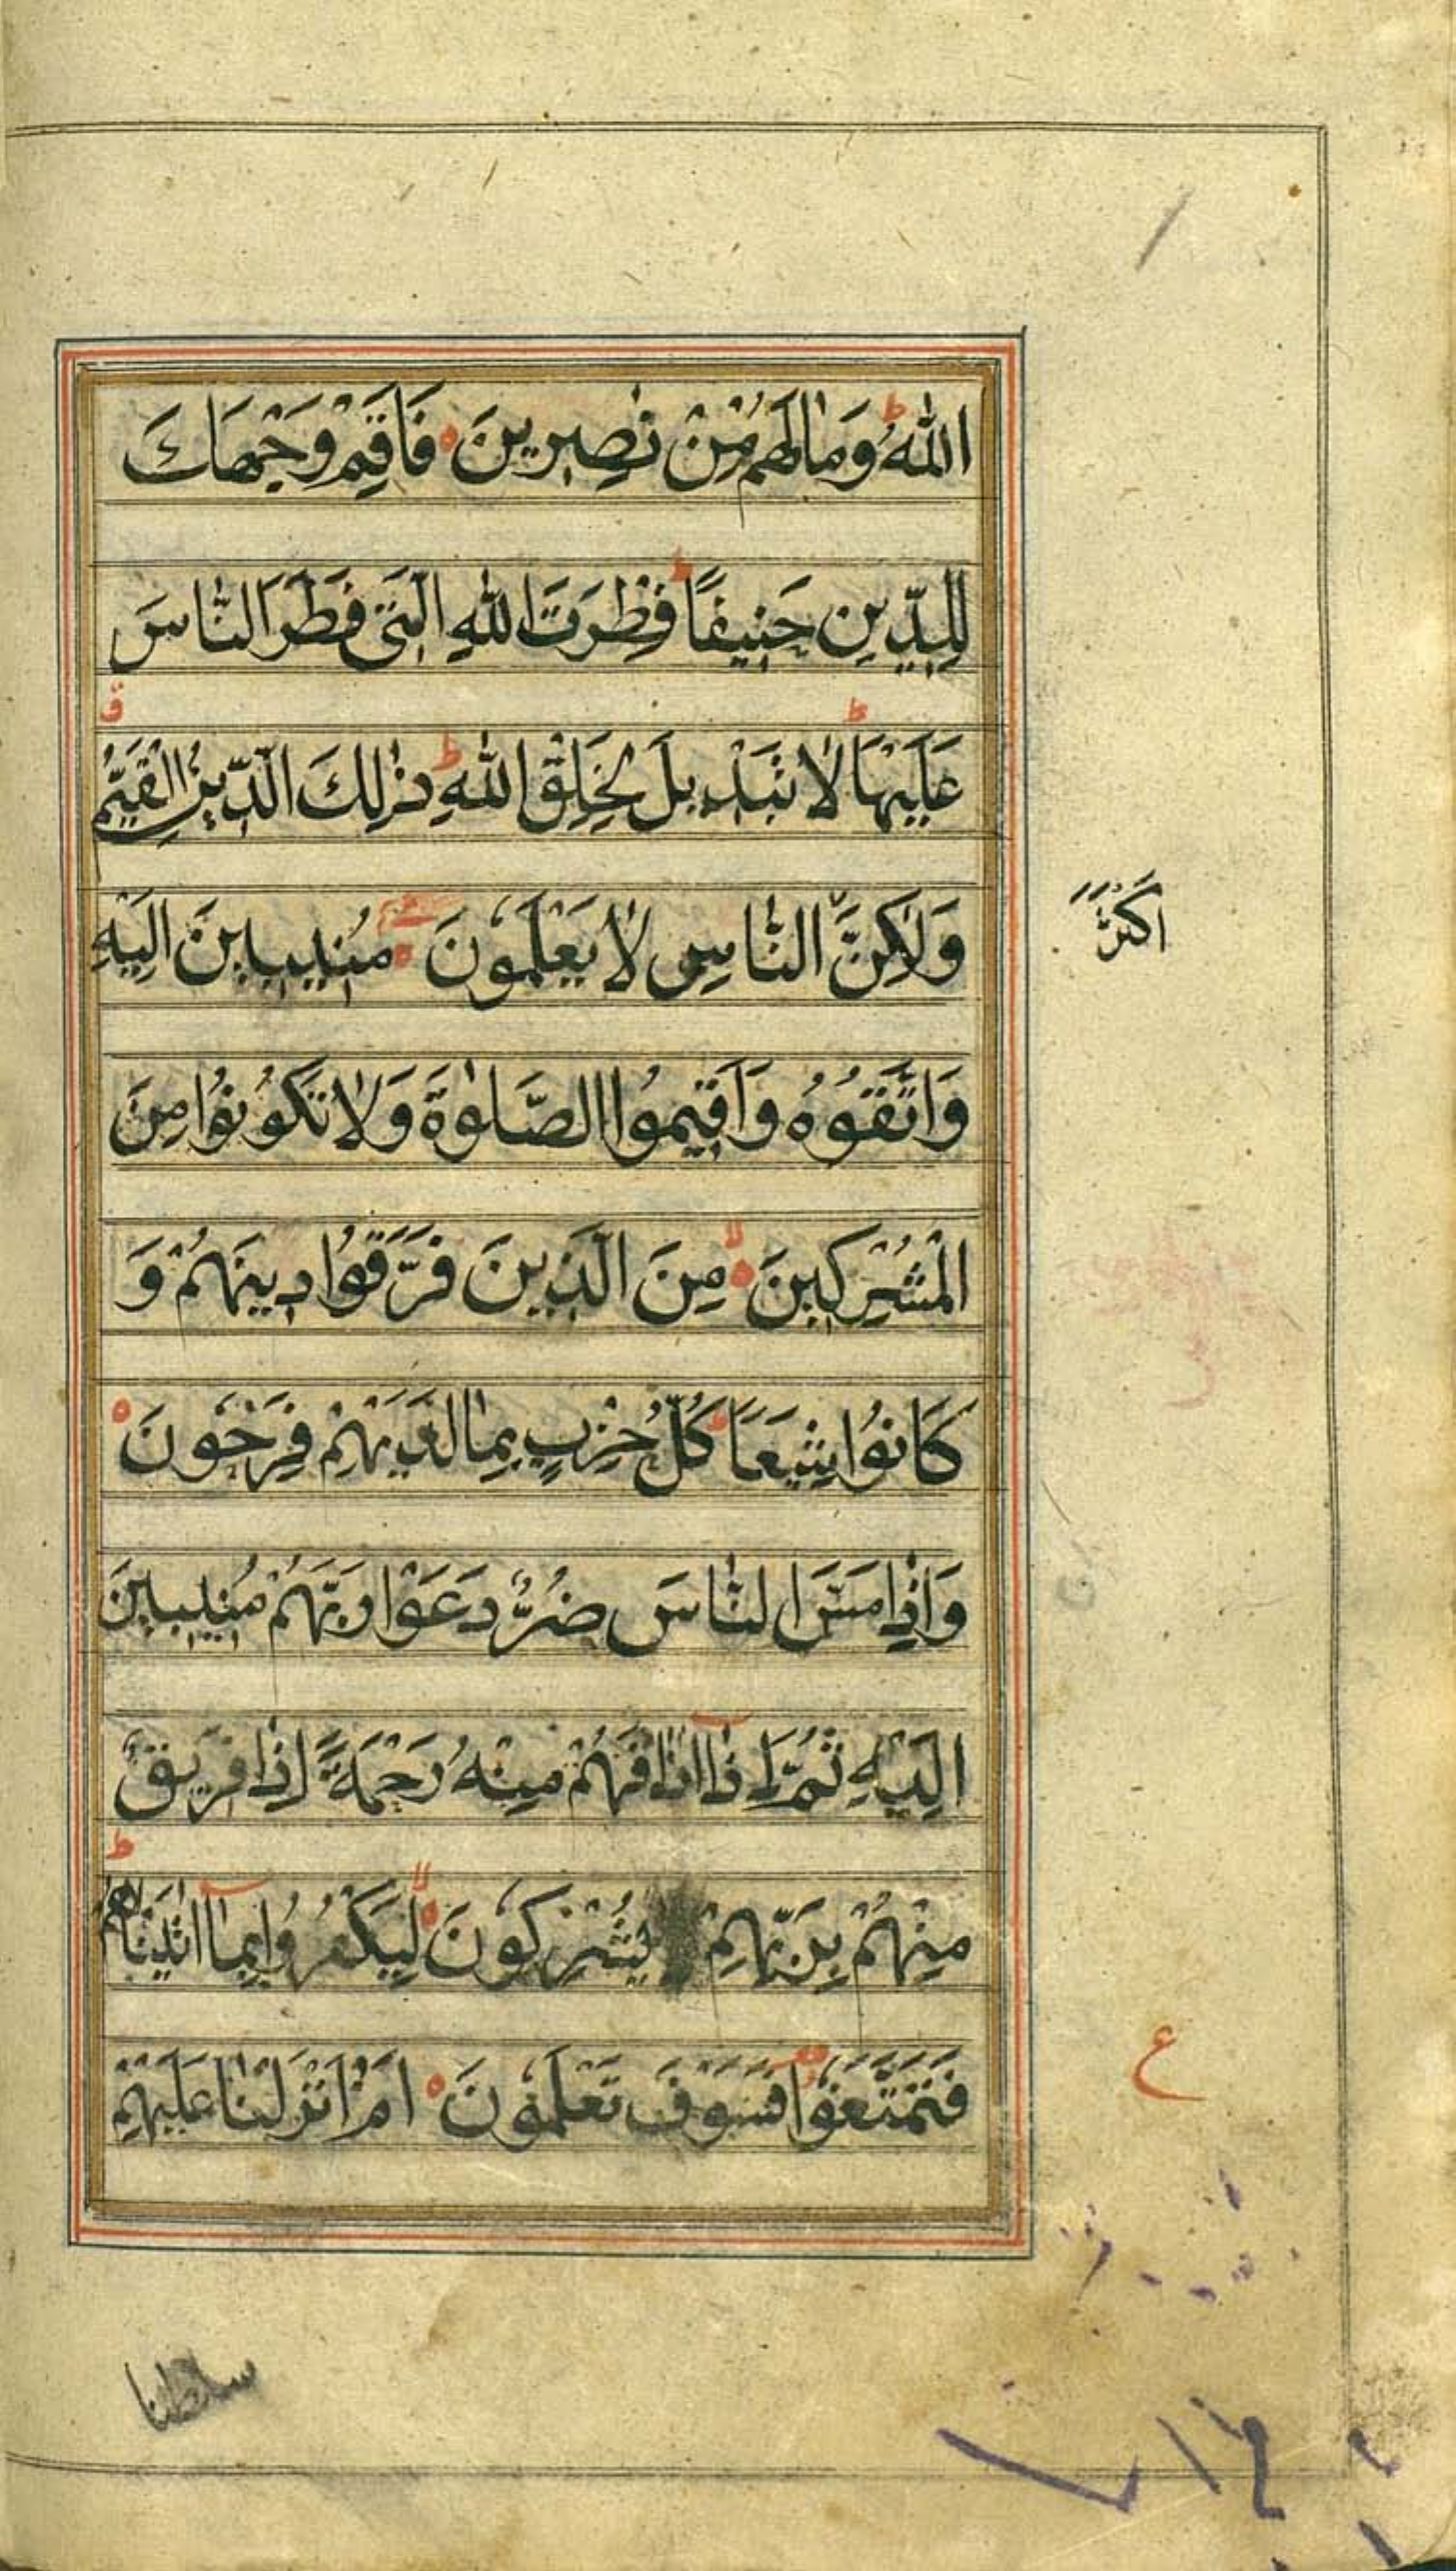 اللهُ وَمَا لَهُمْ مِّنْ نٰصِرِينَ فَاَقِمْ وَجْهَكَ
لِلدِّينِ حَنِيفًا ط فِطْرَتَ اللهِ الَّتِى فَطَرَ النَّاسَ
عَلَيْهَا ط لَا تَبْدِيلَ لِخَلْقِ اللهِ ط ذٰلِكَ الدِّينُ الْقَيِّمُ
وَلٰكِنَّ النَّاسِ لَا يَعْلَمُونَ مُنِيبِينَ اِلَيْهِ
اَكْثَرَ
وَاتَّقُوهُ وَاَقِيمُوا الصَّلٰوةَ وَلَا تَكُونُوا مِنَ
الْمُشْرِكِينَ مِنَ الَّذِينَ فَرَّقُوا دِينَهُمْ وَ
كَانُوا شِيَعًا ط كُلُّ حِزْبٍ بِمَا لَدَيْهِمْ فَرِحُونَ
وَاِذَا مَسَّ النَّاسَ ضُرٌّ دَعَوْا رَبَّهُمْ مُنِيبِينَ
اِلَيْهِ ثُمَّ اِذَا اَذَاقَهُمْ مِنْهُ رَحْمَةً اِذَا فَرِيقٌ
مِنْهُمْ بِرَبِّهِمْ يُشْرِكُونَ لِيَكْفُرُوا بِمَا اٰتَيْنٰهُمْ ط
فَتَمَتَّعُوا فَسَوْفَ تَعْلَمُونَ اَمْ اَنْزَلْنَا عَلَيْهِمْ
ع
سلطنا